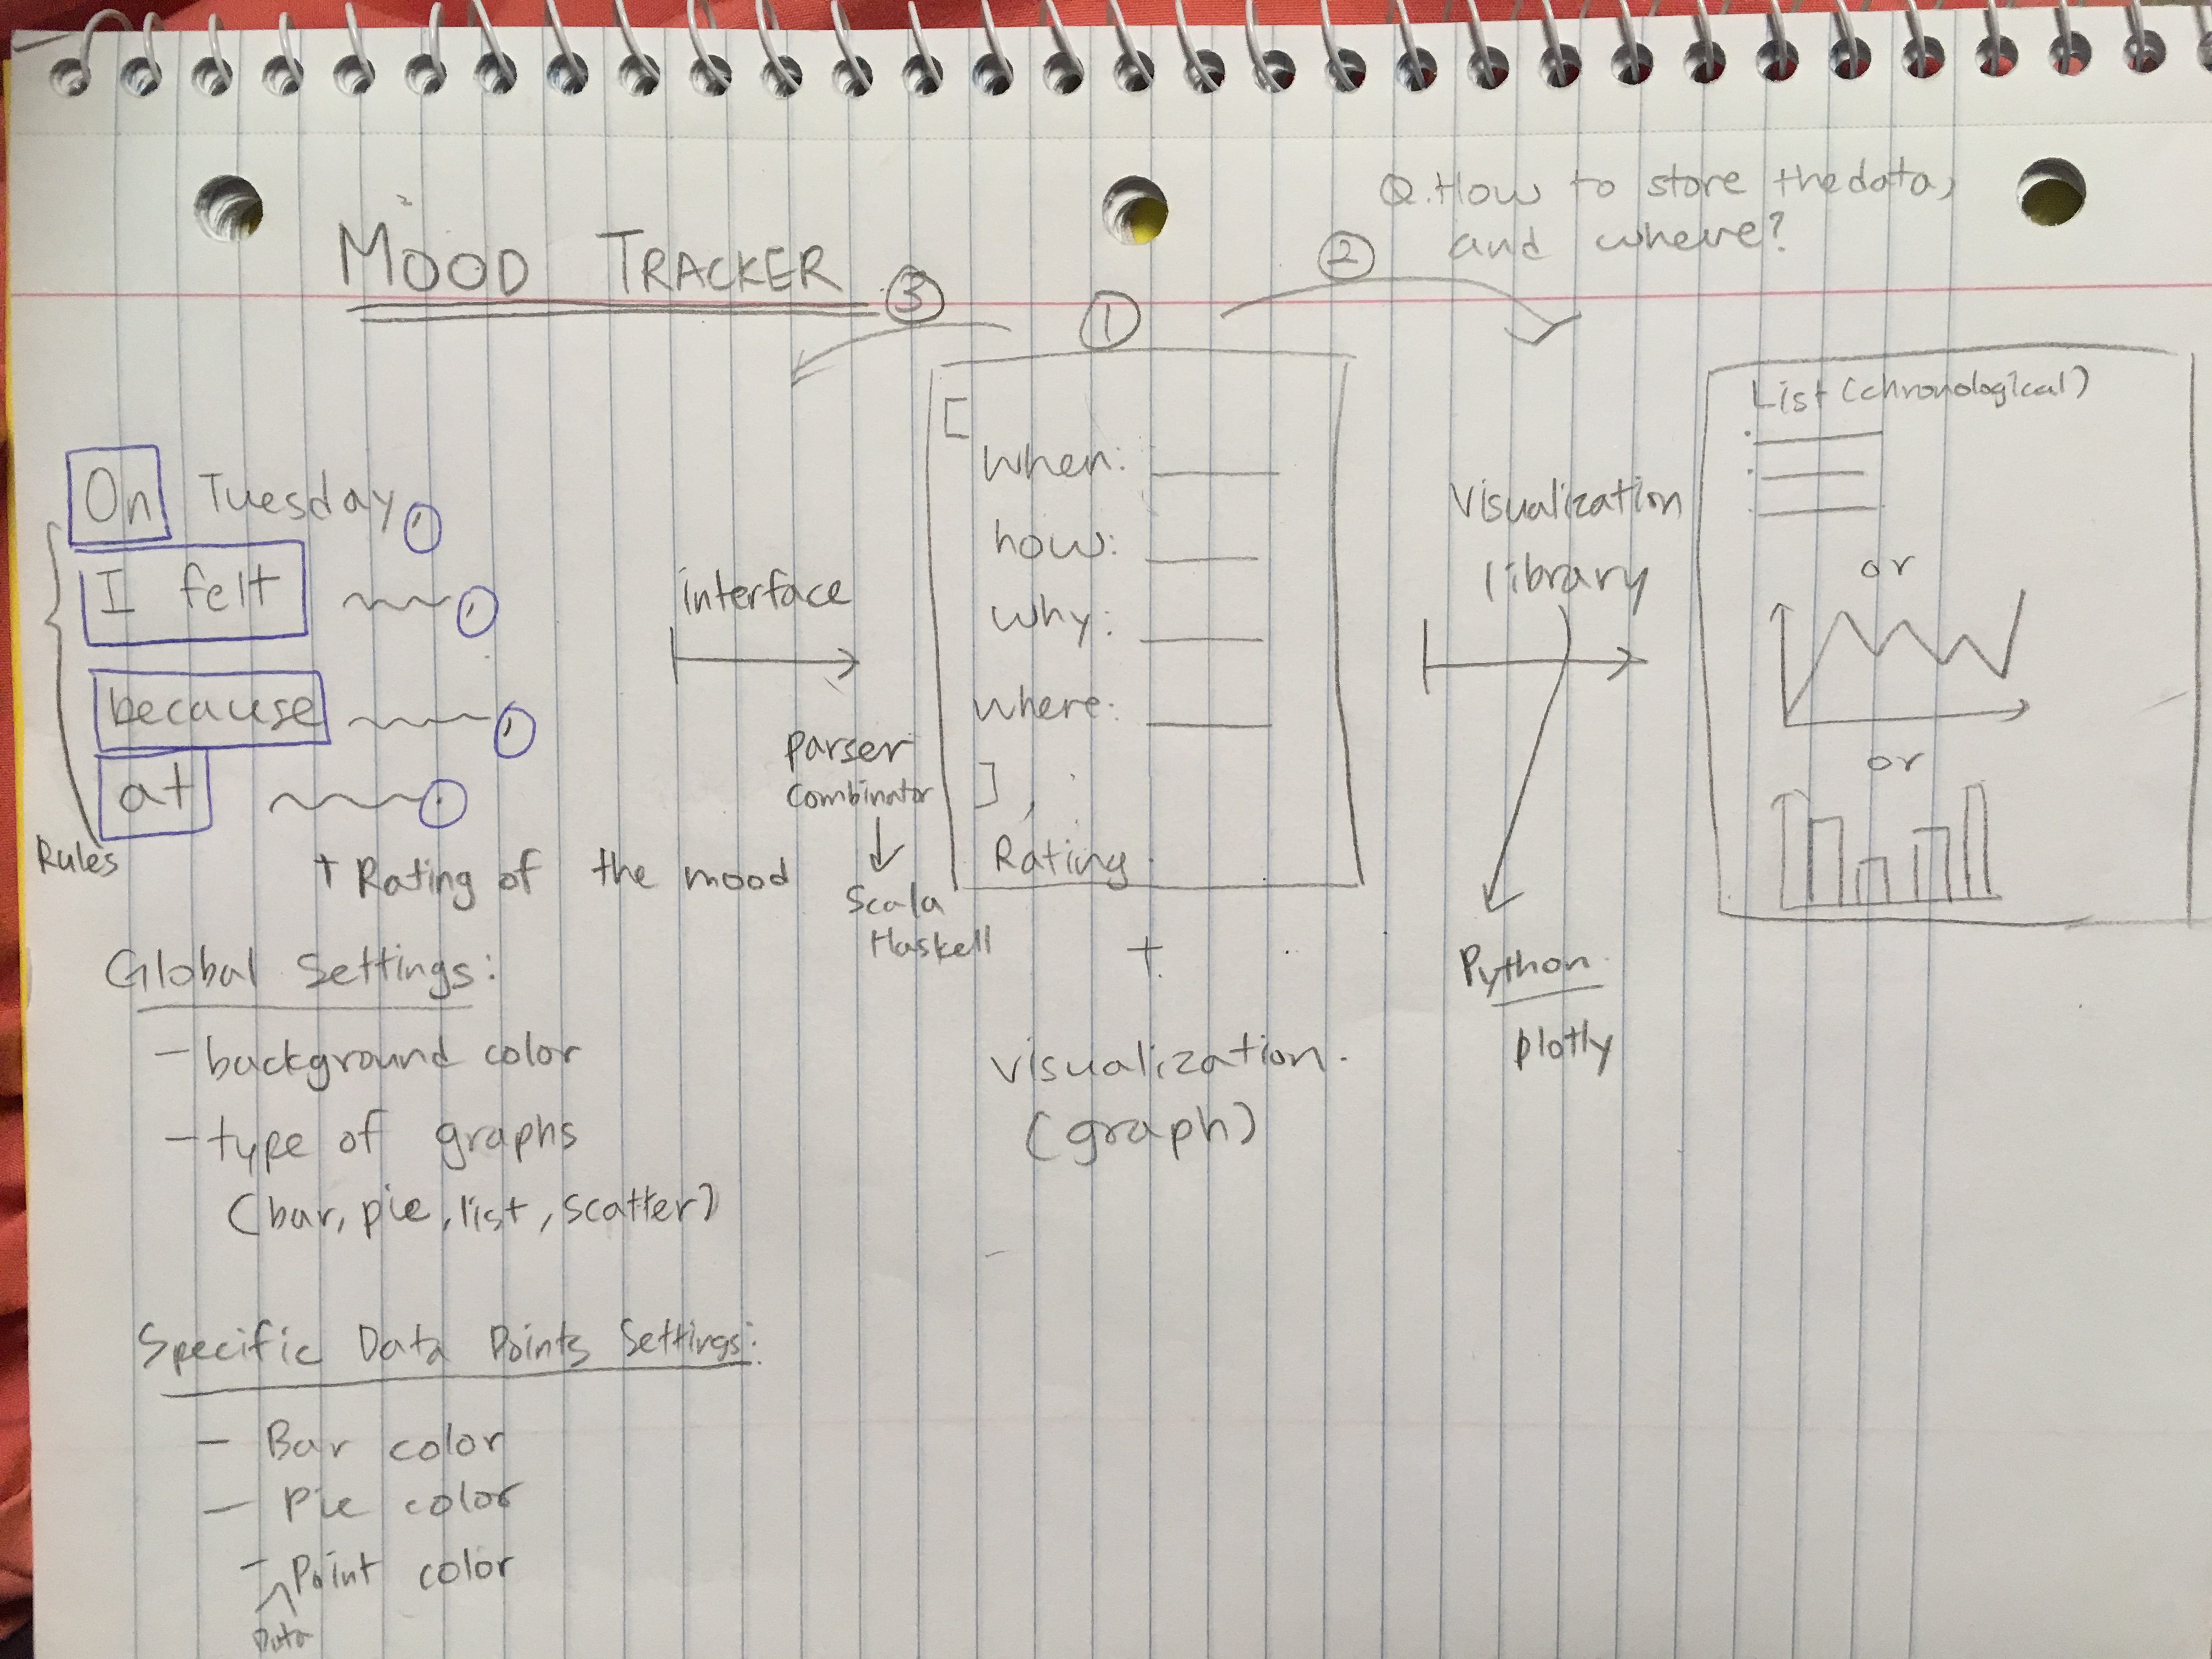 Q. How to store the data,
and where?
MOOD TRACKER
③
①
②
On Tuesday,
I felt ,
because ,
at .
Rules
+ Rating of the mood
interface
parser
combinator
Scala
Haskell
[
when:
how:
why:
where:
],
Rating
+
visualization
(graph)
Visualization
library
Python
plotly
List (chronological)
or
or
Global Settings:
- background color
- type of graphs
(bar, pie, list, scatter)
Specific Data Points Settings:
- Bar color
- Pie color
- Point color
Data